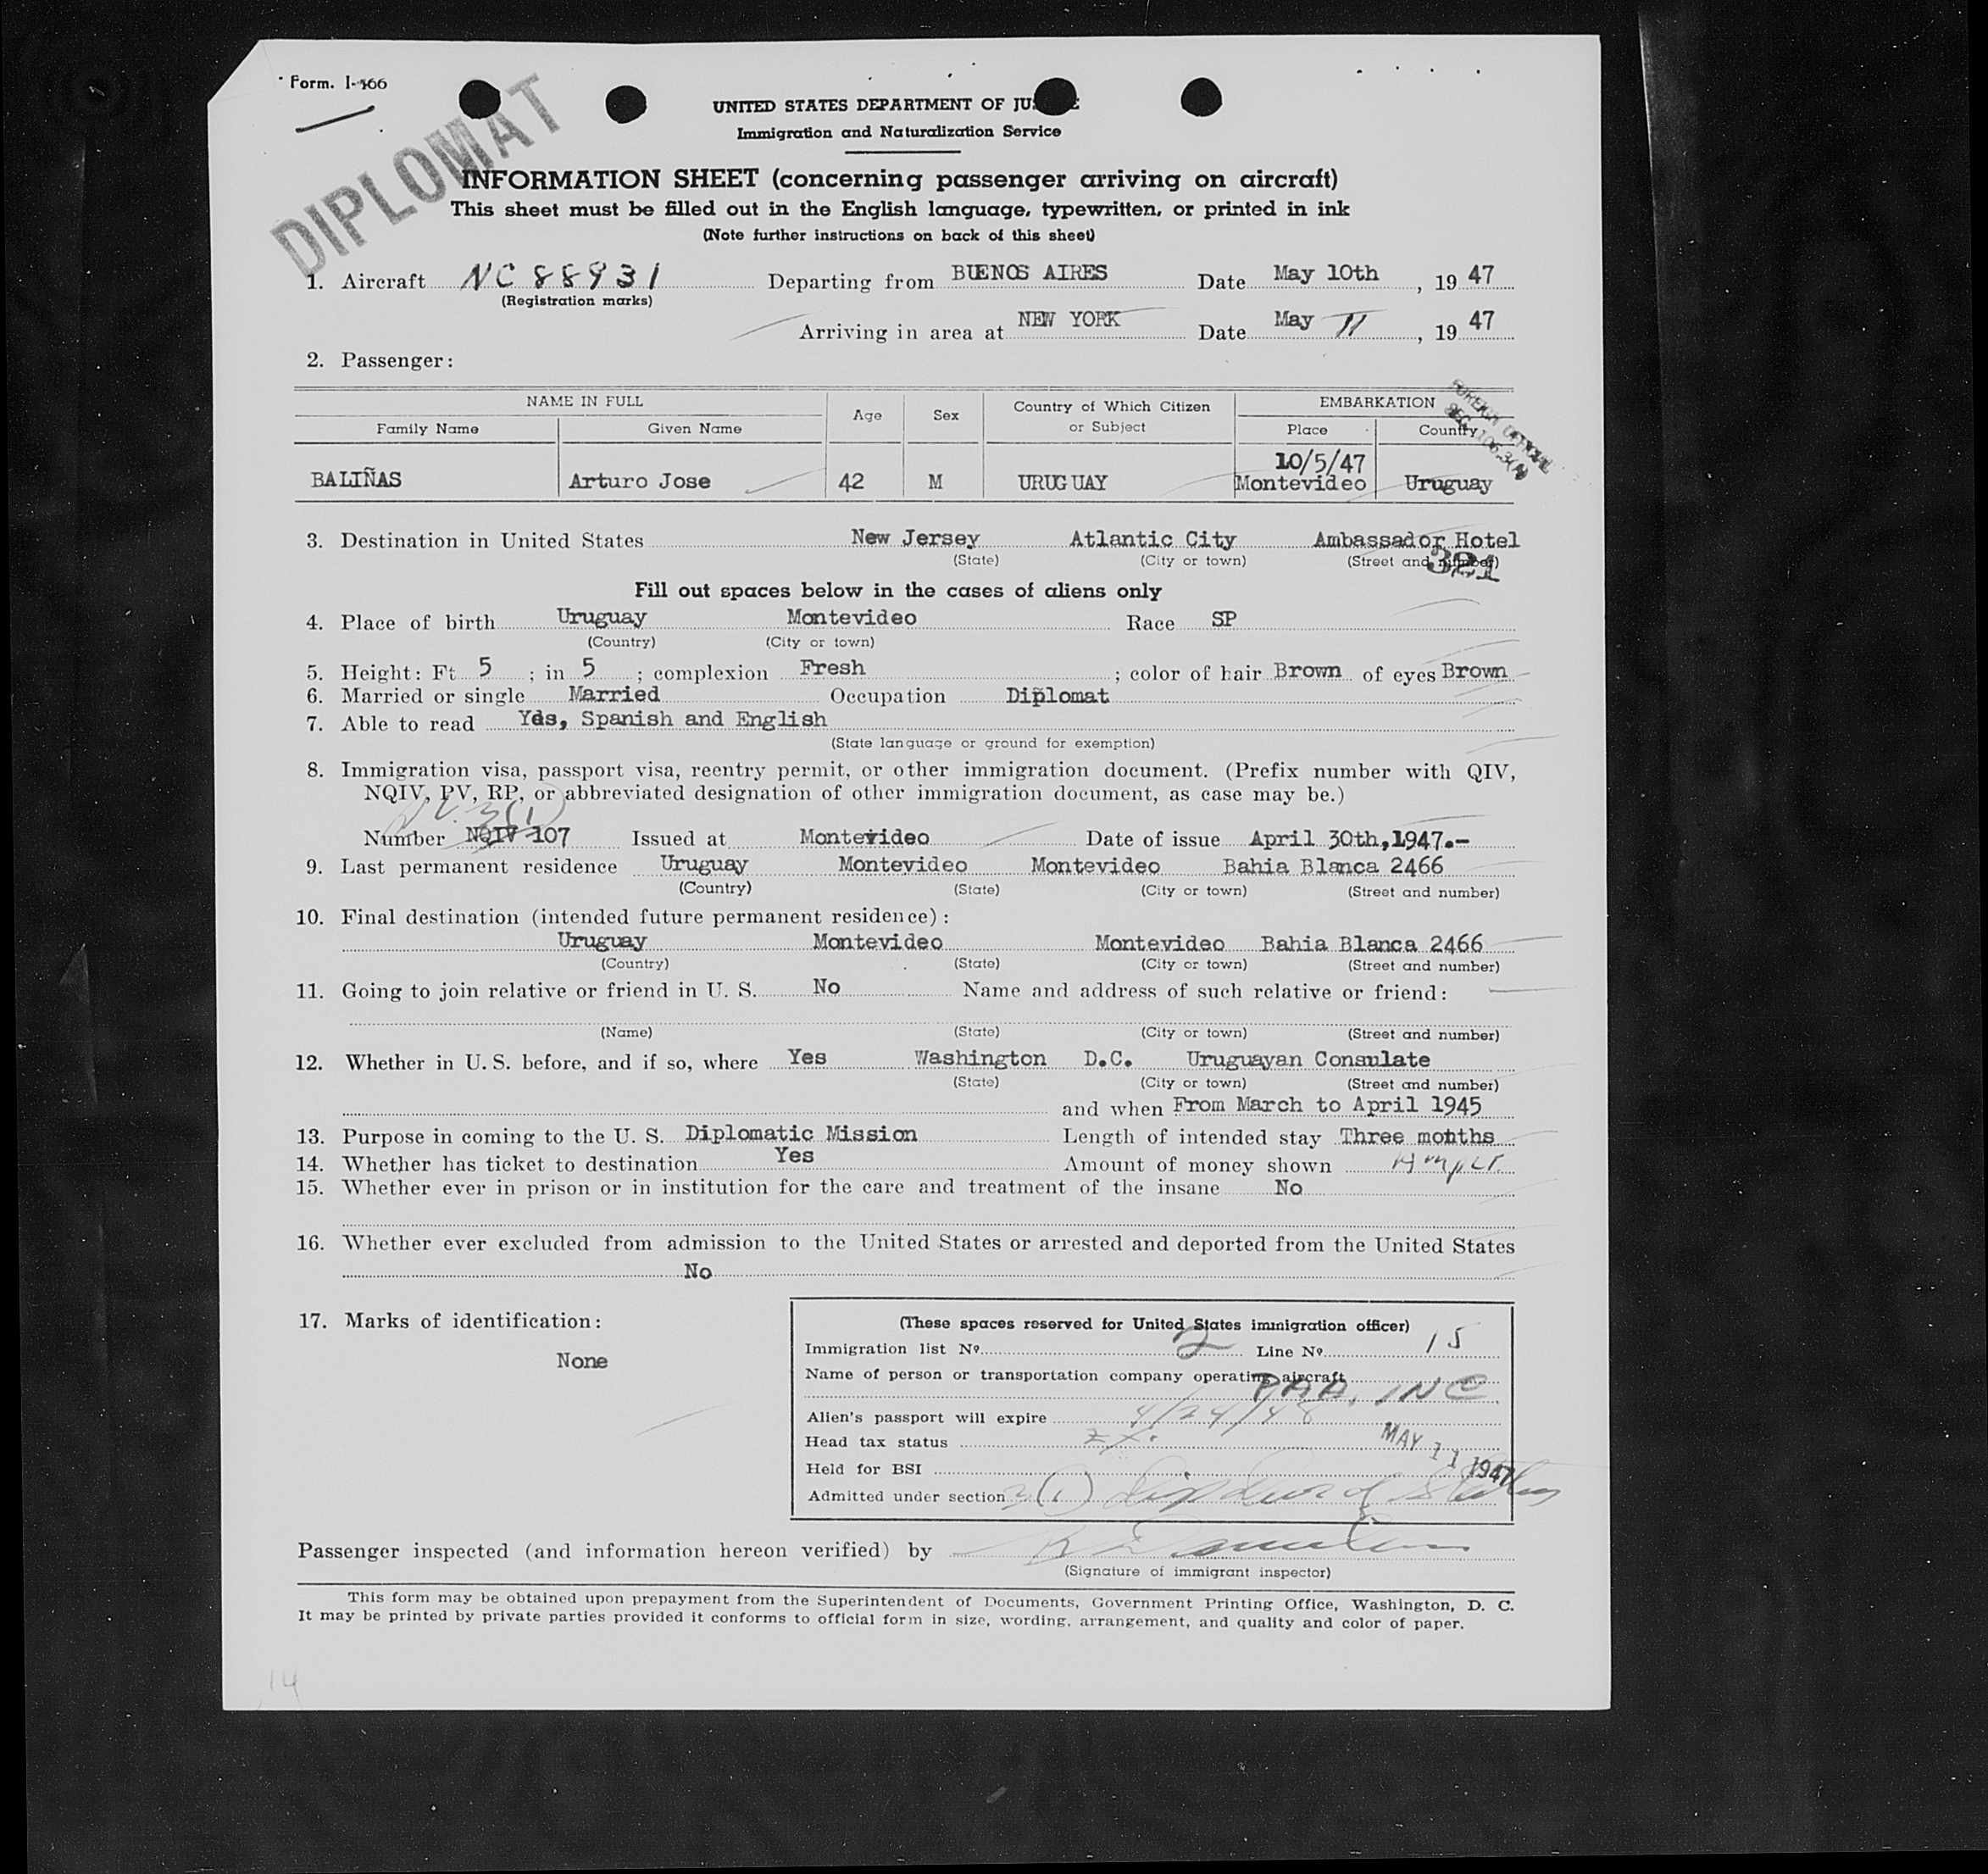 Form. I-466
DIPLOMAT
UNITED STATES DEPARTMENT OF JUSTICE
Immigration and Naturalization Service
INFORMATION SHEET (concerning passenger arriving on aircraft)
This sheet must be filled out in the English language, typewritten, or printed in ink
(Note further instructions on back of this sheet)
1. Aircraft NC 88931 Departing from BUENOS AIRES Date May 10th, 19 47
(Registration marks)
Arriving in area at NEW YORK Date May 11, 19 47
2. Passenger:
NAME IN FULL Age Sex Country of Which Citizen or Subject EMBARKATION
Family Name Given Name Place Country
10/5/47
BALIÑAS Arturo Jose 42 M URUGUAY Montevideo Uruguay
3. Destination in United States New Jersey Atlantic City Ambassador Hotel
(State) (City or town) (Street and number)
321
Fill out spaces below in the cases of aliens only
4. Place of birth Uruguay Montevideo Race SP
(Country) (City or town)
5. Height: Ft 5 ; in 5 ; complexion Fresh ; color of hair Brown of eyes Brown
6. Married or single Married Occupation Diplomat
7. Able to read Yes, Spanish and English
(State language or ground for exemption)
8. Immigration visa, passport visa, reentry permit, or other immigration document. (Prefix number with QIV,
NQIV, PV, RP, or abbreviated designation of other immigration document, as case may be.)
3(1)
Number NQIV 107 Issued at Montevideo Date of issue April 30th,1947.-
9. Last permanent residence Uruguay Montevideo Montevideo Bahia Blanca 2466
(Country) (State) (City or town) (Street and number)
10. Final destination (intended future permanent residence):
Uruguay Montevideo Montevideo Bahia Blanca 2466
(Country) (State) (City or town) (Street and number)
11. Going to join relative or friend in U. S. No Name and address of such relative or friend:
(Name) (State) (City or town) (Street and number)
12. Whether in U. S. before, and if so, where Yes Washington D.C. Uruguayan Consulate
(State) (City or town) (Street and number)
and when From March to April 1945
13. Purpose in coming to the U. S. Diplomatic Mission Length of intended stay Three months
14. Whether has ticket to destination Yes Amount of money shown
15. Whether ever in prison or in institution for the care and treatment of the insane No
16. Whether ever excluded from admission to the United States or arrested and deported from the United States
No
17. Marks of identification:
None
(These spaces reserved for United States immigration officer)
Immigration list No. 2 Line No. 15
Name of person or transportation company operating aircraft
PAA. INC
Alien's passport will expire 4/24/48
Head tax status
MAY 11 1947
Held for BSI
Admitted under section 3(1)
Passenger inspected (and information hereon verified) by
(Signature of immigrant inspector)
This form may be obtained upon prepayment from the Superintendent of Documents, Government Printing Office, Washington, D. C.
It may be printed by private parties provided it conforms to official form in size, wording, arrangement, and quality and color of paper.
14